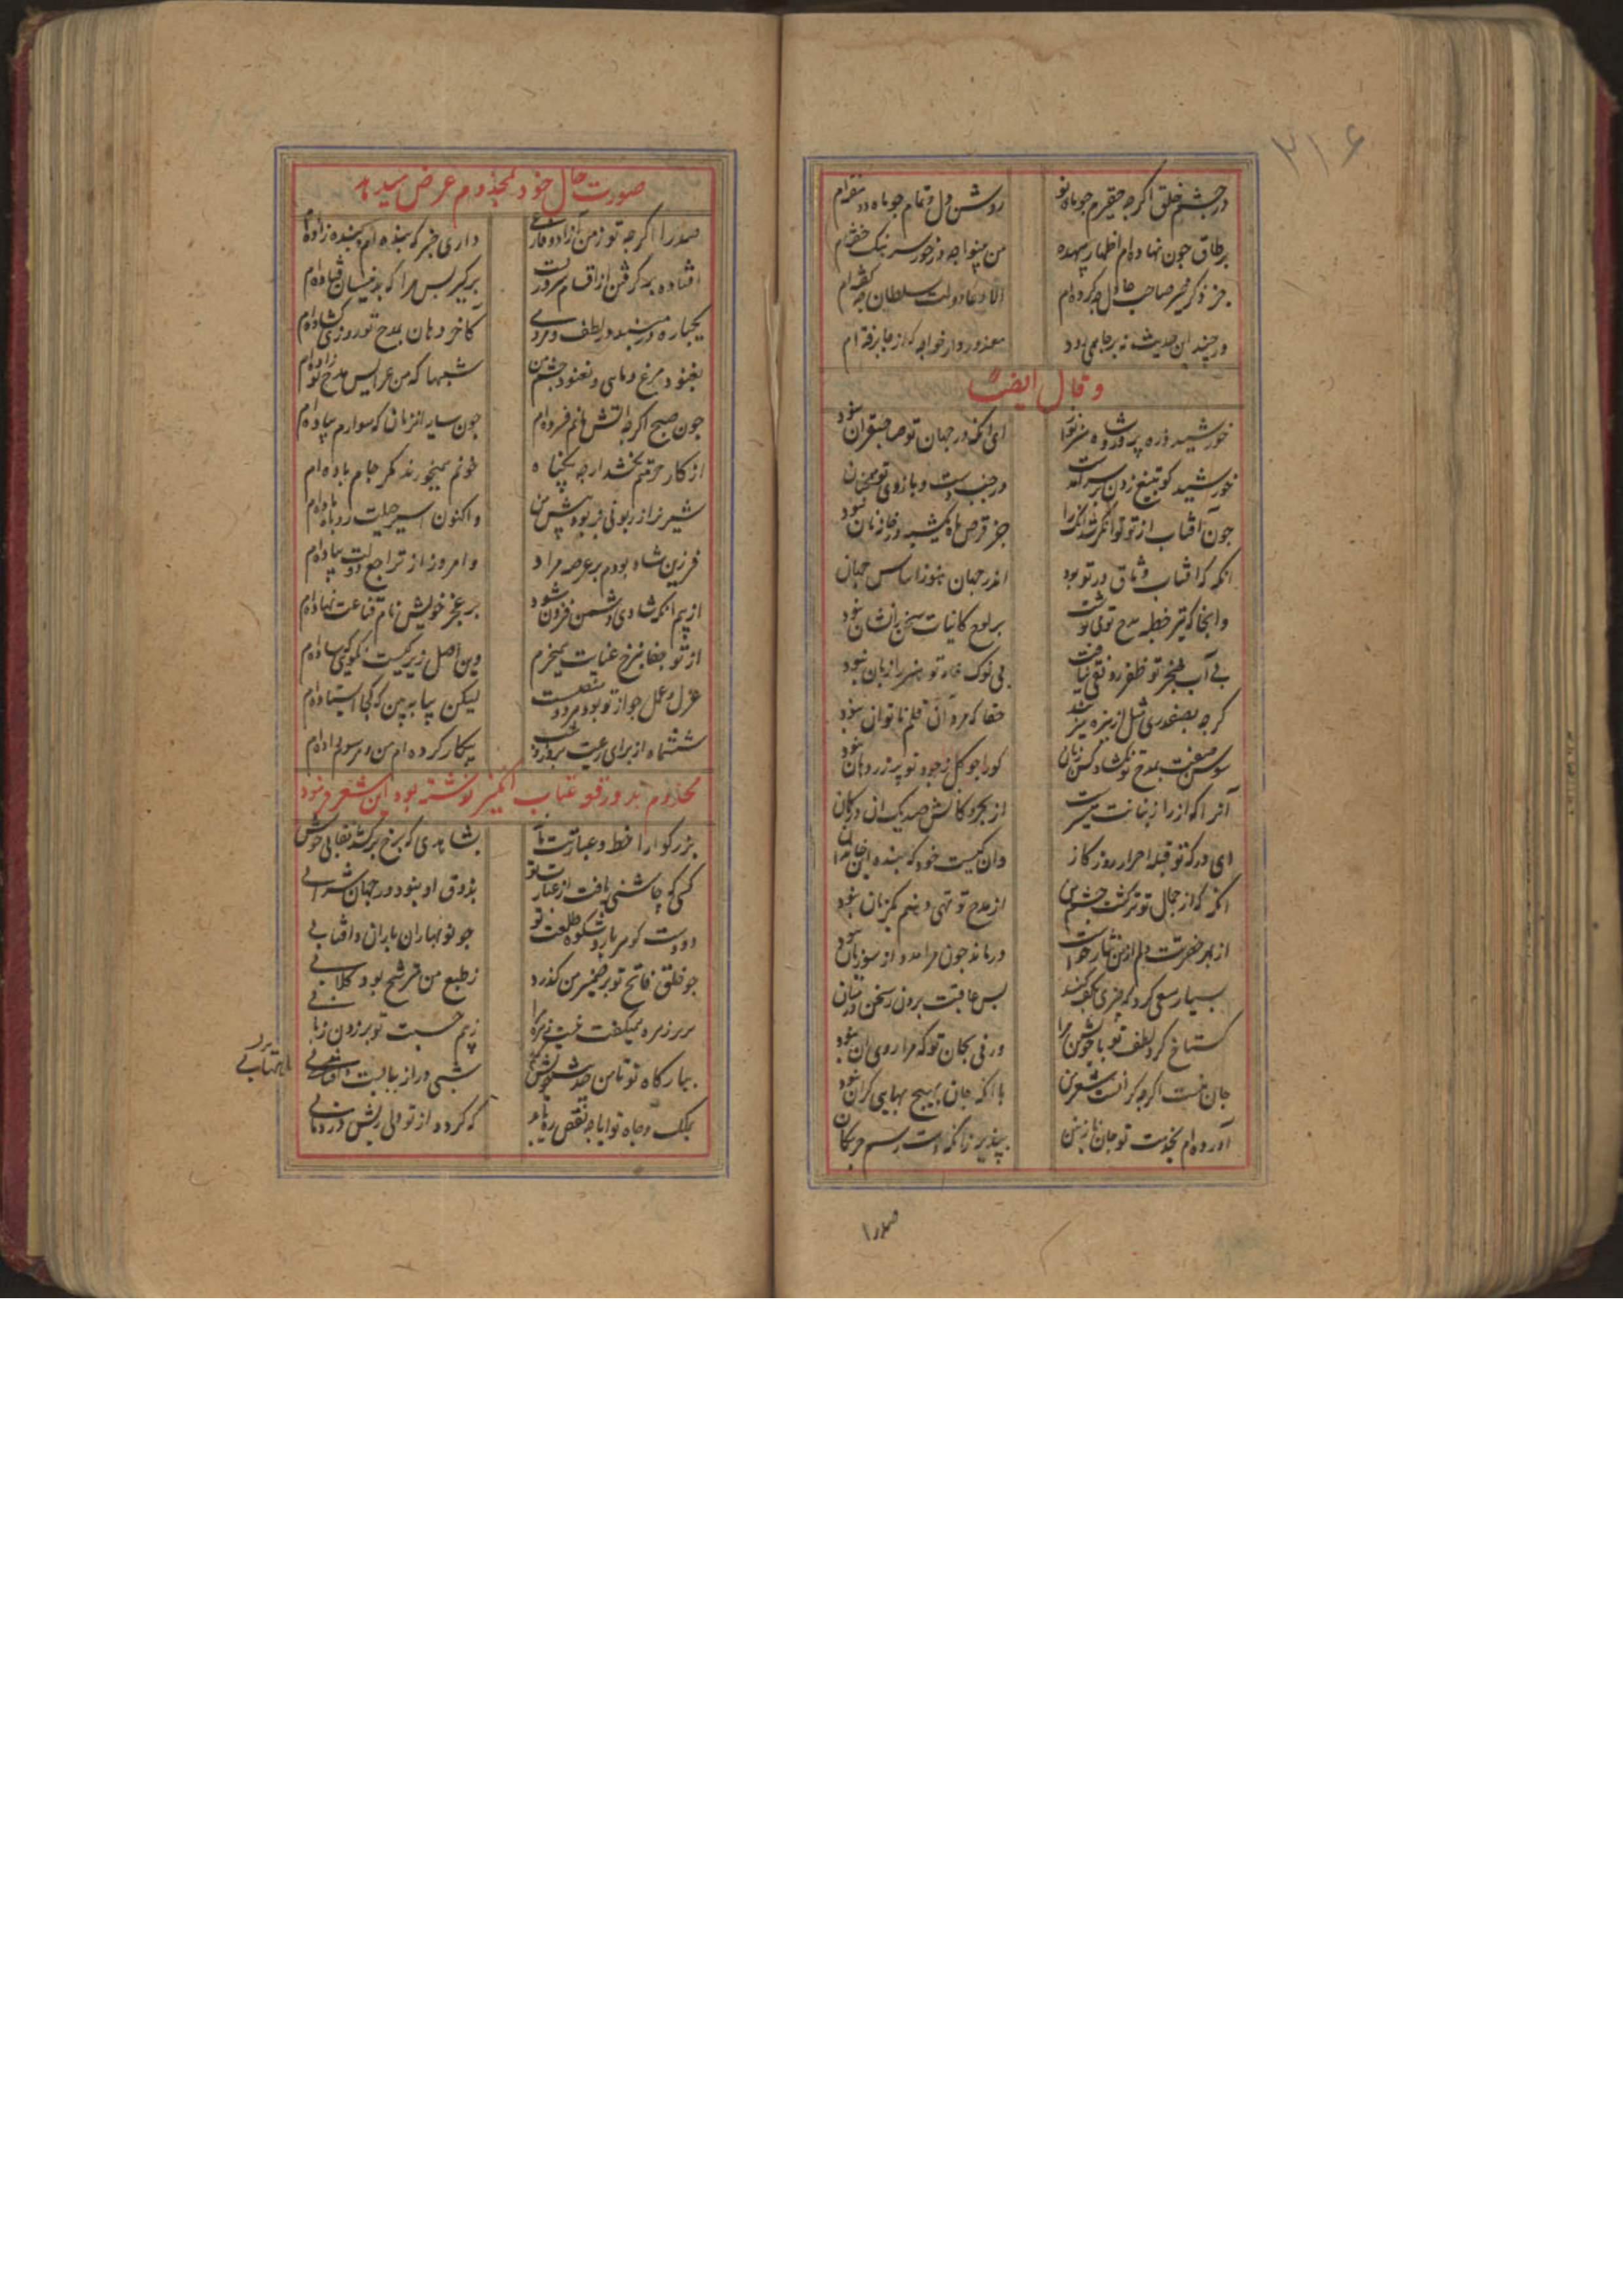 ۳۱۶
در چشم خلق اگرچه حقیرم چو ماه نو
روشن دل و تمام چو ماه دو
بر طاق چون نهاده ام اظهار بیهده
من
جز ذکر خیر صاحب عادل چه کرده ام
الا دعا دولت سلطان چه گفته ام
هرچند این حدیث نه بر جایگه بود
معذور دار خواجه که از جا برفته ام
وقال ایضا
خورشید ذره پرور و
ای آنکه در جهان تو صاحبقران نبود
خورشید کو بتیغ زدن بر سر آمدست
در جنب دست و بازوی تو
چون آفتاب از تو توانگر شد آنکه را
جز قرص ماه نبود
آنگه که آفتاب وثاق در تو بود
اندر جهان هنوز اساس جهان
وانجا که تیر خطبه مدح تو می نوشت
بر لوح کاینات سخن را نشان نبود
بی آب خنجر تو ظفر رونقی نیافت
بی نوک خامه تو هنر را زبان نبود
گرچه بصفدری مثل از نیزه میزنند
حقا که مرد آن قلم ناتوان نبود
سوسن صفت بمدح تو نگشاد کس زبان
کورا چو گل ز جود تو پر زر دهان نبود
آنرا که از
از بحر و کانش صد یک آن
ای درگه تو قبله احرار روزگار
وان کیست خود که بنده این خاندان
آنگه که از جمال تو برگشت چشم من
از مدح تو تهی دهنم یکزمان نبود
از بهر حضرتت دلم از من نثار خواست
درماند چون مرا مدد از سوزیان نبود
بسیار سعی کرد که چیزی بکف کند
پس عاقبت برون ز سخن در میان
گستاخ کرد لطف تو با خویشتن مرا
ورنی بجان تو که مرا روی آن نبود
جان منست اگرچه گرانست شعر من
با آنکه جان بهیچ بهایی گران نبود
آورده ام بخدمت تو جان نازنین
بپذیر زانکه
صدرا
صورت حال خود بمخدوم عرض میدهد
صدرا اگرچه تو ز من آزاد و فارغی
داری خبر که بنده ام و بنده زاده ام
افتاده برگرفتن از اقسام سروریست
برگیر پس مرا که بدینسان فتاده ام
یکباره در مبند در لطف و مردمی
کاخر دهان بمدح تو روزی گشاده ام
بغنود مرغ و ماهی و نغنود چشم من
شبها که من عرایس مدح تو زاده ام
چون صبح اگرچه
چون سایه
از کار
خونم همیخورند مگر جام باده ام
شیر نر از زبونی
واکنون اسیر حیلت روباه
فرزین شاه بودم بر عرصه مراد
وامروز از تراجع دولت پیاده ام
از بیم آنکه شادی دشمن فزون شود
بر عجز خویش نام قناعت نهاده ام
از تو جفا بنرخ عنایت همیخرم
وین اصل زیرکیست نگویی که ساده ام
عزل و عمل چو از تو بود هر دو منصبست
لیکن بیا ببین که کجا ایستاده ام
ششماه از برای رعیت بروز و شب
بیکار کرده ام من و مرسوم داده ام
مخدوم بدو رقعه عتاب آمیز نوشته بود این شعر فرمود
بزرگوارا خط و عبارتت
بشاهدی که برخ برکشد نقابی خوش
کسی کو چاشنی یافت از عبارت تو
بذوق او نبود در جهان شرابی
دو دست گوهربار و شکوه طلعت تو
چو نوبهاران بارانی و آفتابی
چو خلق فاتح تو بر ضمیر من گذرد
ز طبع من مترشح بود گلابی
ز بیم حسبت تو بر زدن
ببارگاه تو تا من
شبی دراز ببایست و
ماهتابی
بملک و جاه تو آیا چه نقص
که گردد از تو دلی ریش